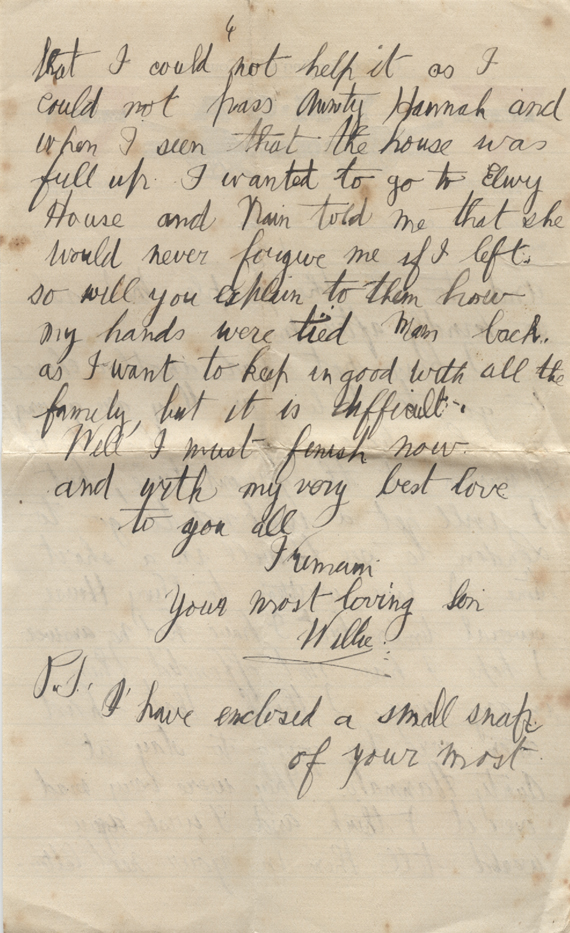 6
that I could not help it as I
could not pass Aunty Hannah and
when I seen that the house was
full up. I wanted to go to Elwy
House and Nain told me that she
would never forgive me if I left.
so will you explain to them how
my hands were tied Mam bach.
as I want to keep in good with all the
family, but it is difficult.
Well I must finish now.
and with my very best love
to you all
I remain
Your most loving Son
Willie.
P.S. I have enclosed a small snap.
of your most